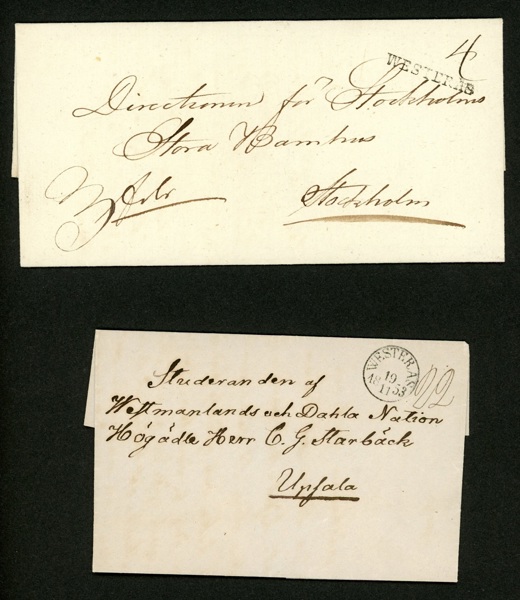 4
WESTERÅS
Directionen för Stockholms
Stora Barnhus
Stockholm
WESTERÅS
19
11
1853
Studeranden af
Westmanlands och Dahla Nation
Högädle Herr C. G. Starbäck
Upsala